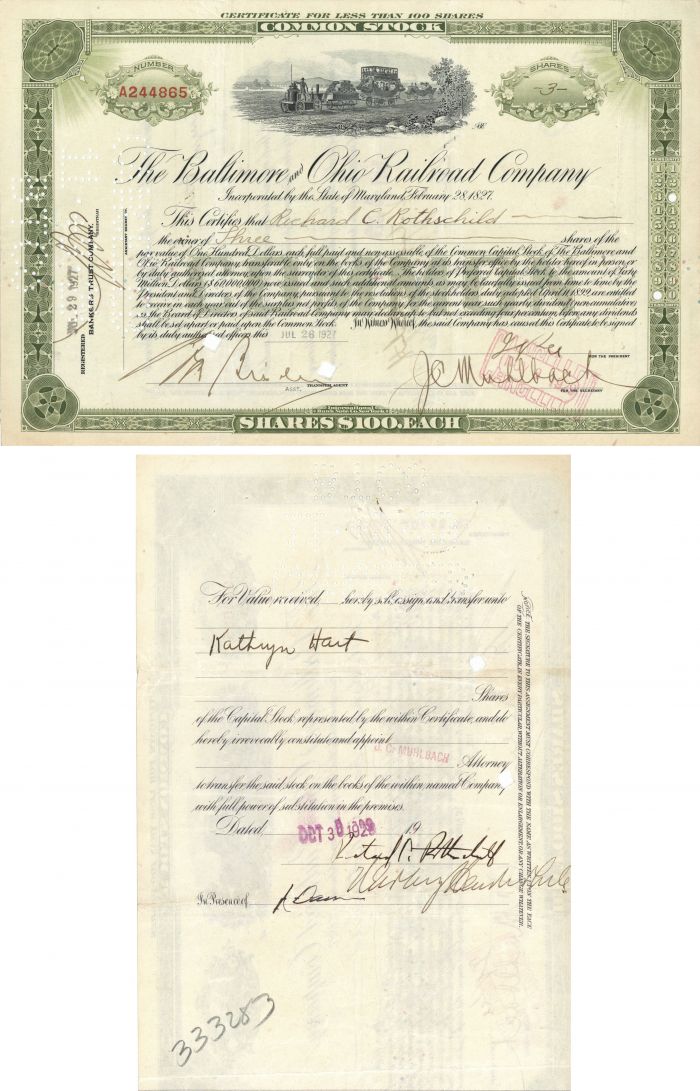 CERTIFICATE FOR LESS THAN 100 SHARES
COMMON STOCK
NUMBER
A244865
SHARES
-3-
The Baltimore and Ohio Railroad Company
Incorporated by the State of Maryland, February 28, 1827.
This Certifies that Richard C. Rothschild
the owner of Three shares of the
par value of One Hundred Dollars each, full paid and non-assessable, of the Common Capital Stock of The Baltimore and
Ohio Railroad Company, transferable only on the books of the Company at its transfer office by the holder hereof in person, or
by duly authorized attorney, upon the surrender of this certificate. The holders of Preferred Capital Stock to the amount of Sixty
Million Dollars ($60,000,000) now issued and such additional amounts as may be lawfully issued from time to time by the
President and Directors of the Company, pursuant to the resolutions of the stockholders duly adopted April 11, 1899, are entitled
to receive in each year out of the surplus net profits of the Company, for the current year such yearly dividend, non-cumulative
as the Board of Directors of said Railroad Company may declare up to but not exceeding four per centum, before any dividends
shall be set apart or paid upon the Common Stock. In Witness Whereof, the said Company has caused this Certificate to be signed
by its duly authorized officers this JUL 28 1927
ASST. TRANSFER AGENT
FOR THE PRESIDENT
J C Muhlbach
FOR THE SECRETARY
SHARES $100. EACH
REGISTERED
29 1927
BANKERS TRUST COMPANY,
For Value received, hereby sell, assign, and transfer unto
Kathryn Hart
Shares
of the Capital Stock represented by the within Certificate, and do
hereby irrevocably constitute and appoint
J. C. MUHLBACH
Attorney
to transfer the said stock on the books of the within named Company
with full power of substitution in the premises.
Dated, 19
OCT 30 1929
Richard C. Rothschild
In Presence of
NOTICE. THE SIGNATURE TO THIS ASSIGNMENT MUST CORRESPOND WITH THE NAME AS WRITTEN UPON THE FACE
OF THE CERTIFICATE IN EVERY PARTICULAR, WITHOUT ALTERATION OR ENLARGEMENT OR ANY CHANGE WHATEVER.
333283